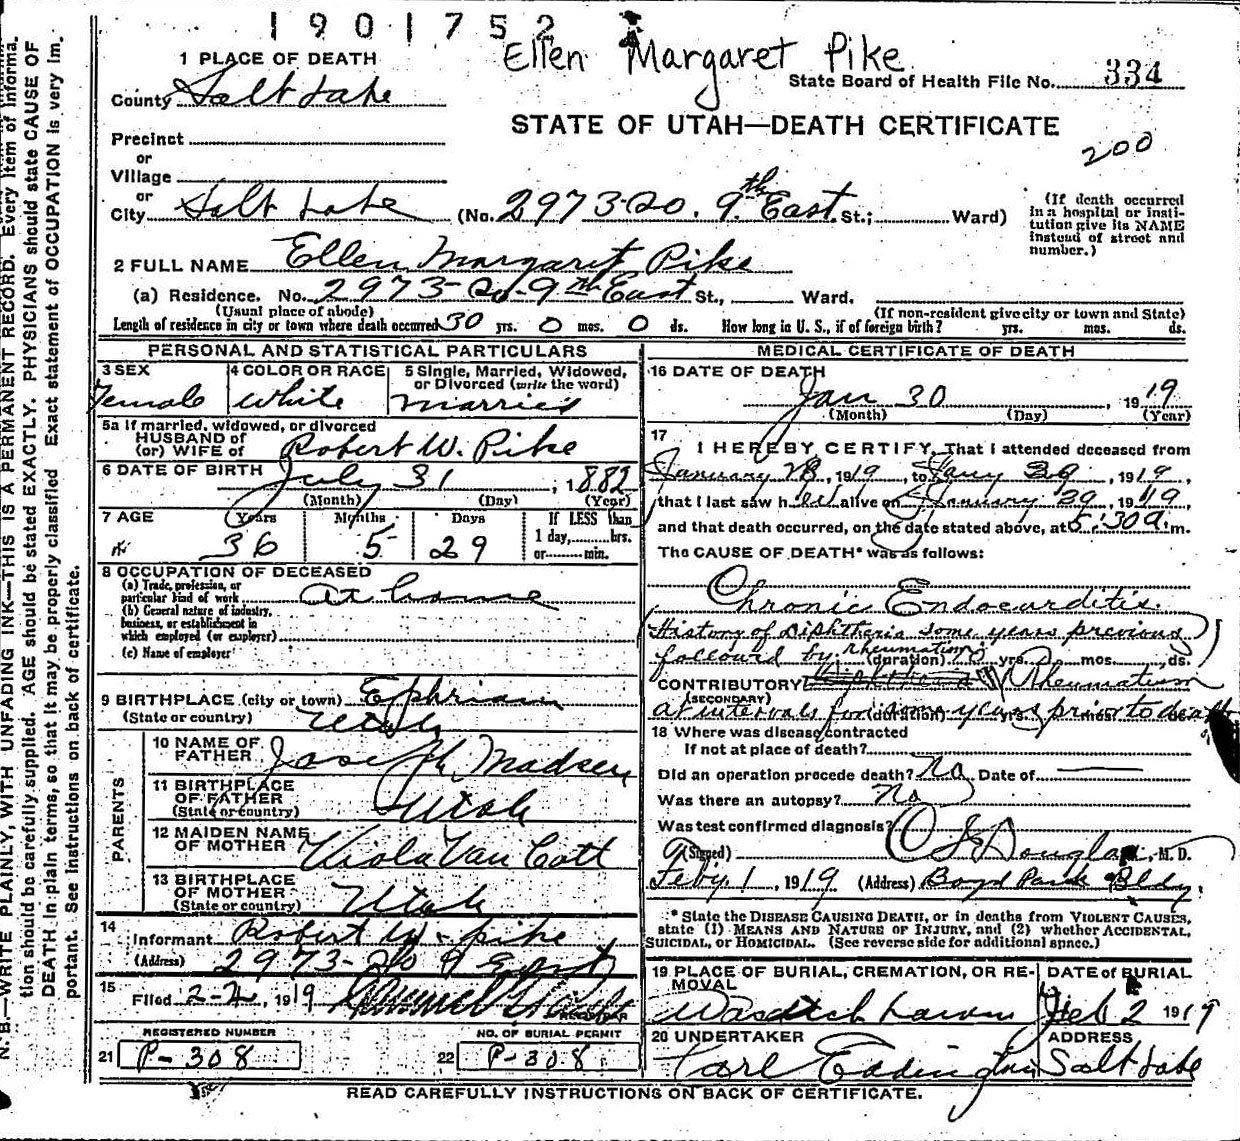 1901752
Ellen Margaret Pike
1 PLACE OF DEATH
State Board of Health File No. 334
County Salt Lake
STATE OF UTAH—DEATH CERTIFICATE
200
Precinct
or
Village
or
City Salt Lake (No. 2973 So. 9th East St.; Ward)
(If death occurred in a hospital or insti-
tution give its NAME
instead of street and
number.)
2 FULL NAME Ellen Margaret Pike
(a) Residence. No. 2973 So. 9th East St., Ward.
(Usual place of abode) (If non-resident give city or town and State)
Length of residence in city or town where death occurred 30 yrs. 0 mos. 0 ds. How long in U. S., if of foreign birth? yrs. mos. ds.
PERSONAL AND STATISTICAL PARTICULARS
3 SEX
Female
4 COLOR OR RACE
White
5 Single, Married, Widowed,
or Divorced (write the word)
Married
5a If married, widowed, or divorced
HUSBAND of
(or) WIFE of Robert W. Pike
6 DATE OF BIRTH July 31, 1882
(Month) (Day) (Year)
7 AGE Years Months Days If LESS than
36 5 29 1 day, hrs.
or min.
8 OCCUPATION OF DECEASED
(a) Trade, profession, or
particular kind of work At home
(b) General nature of industry,
business, or establishment in
which employed (or employer)
(c) Name of employer
9 BIRTHPLACE (city or town) Ephriam
(State or country) Utah
PARENTS
10 NAME OF
FATHER Joseph Madsen
11 BIRTHPLACE
OF FATHER Utah
(State or country)
12 MAIDEN NAME
OF MOTHER Viola Van Cott
13 BIRTHPLACE
OF MOTHER
(State or country) Utah
14
Informant Robert W. Pike
(Address) 2973 So 9 East
15
Filed 2-2, 1919
REGISTRAR
REGISTERED NUMBER NO. OF BURIAL PERMIT
21 P-308 22 P-308
MEDICAL CERTIFICATE OF DEATH
16 DATE OF DEATH
Jan 30, 1919
(Month) (Day) (Year)
17
I HEREBY CERTIFY, That I attended deceased from
January 28, 1919, to Jany 29, 1919,
that I last saw her alive on January 29, 1919
and that death occurred, on the date stated above, at 5:30 a. m.
The CAUSE OF DEATH* was as follows:
Chronic Endocarditis.
History of Diphtheria some years previous
followed by rheumatism (duration) yrs. mos. ds.
CONTRIBUTORY Rheumatism
(SECONDARY)
at intervals for some years prior to death
(duration) yrs. mos. ds.
18 Where was disease contracted
If not at place of death?
Did an operation precede death? No Date of —
Was there an autopsy? No
Was test confirmed diagnosis?
(Signed) Douglas, M. D.
Feby 1, 1919 (Address) Boyd Park Bldg.
* State the DISEASE CAUSING DEATH, or in deaths from VIOLENT CAUSES,
state (1) MEANS AND NATURE OF INJURY, and (2) whether ACCIDENTAL,
SUICIDAL, OR HOMICIDAL. (See reverse side for additional space.)
19 PLACE OF BURIAL, CREMATION, OR RE-
MOVAL
Wasatch Lawn
DATE of BURIAL
Feb 2 1919
20 UNDERTAKER
Earl Eddington
ADDRESS
Salt Lake
READ CAREFULLY INSTRUCTIONS ON BACK OF CERTIFICATE.
N. B.—WRITE PLAINLY, WITH UNFADING INK—THIS IS A PERMANENT RECORD. Every item of informa-
tion should be carefully supplied. AGE should be stated EXACTLY. PHYSICIANS should state CAUSE OF
DEATH in plain terms, so that it may be properly classified. Exact statement of OCCUPATION is very im-
portant. See instructions on back of certificate.